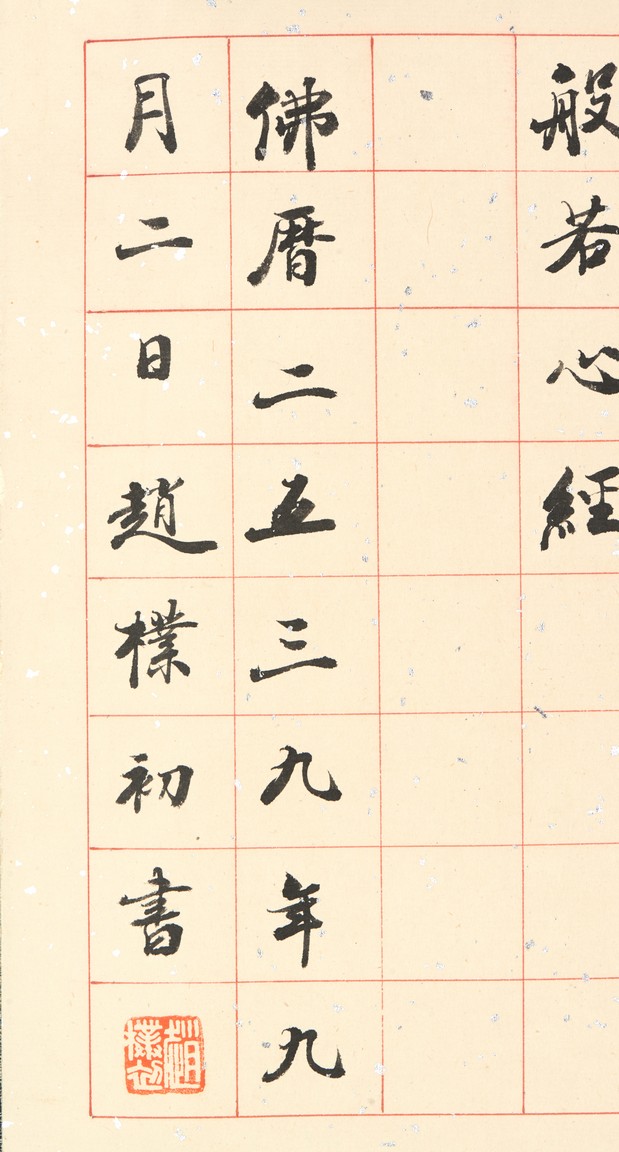 般若心經
佛曆二五三九年九
月二日趙樸初書
趙樸初